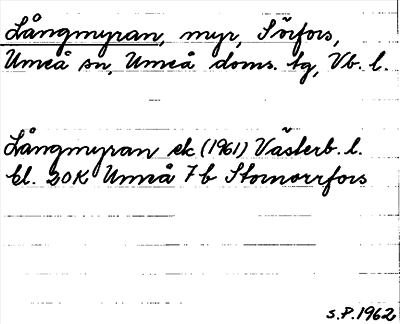 Långmyran, myr, Sörfors,
Umeå sn, Umeå doms. tg, Vb. l.
Långmyran ek (1961) Västerb. l.
bl. 20K Umeå 7b Stornorrfors
S.P. 1962